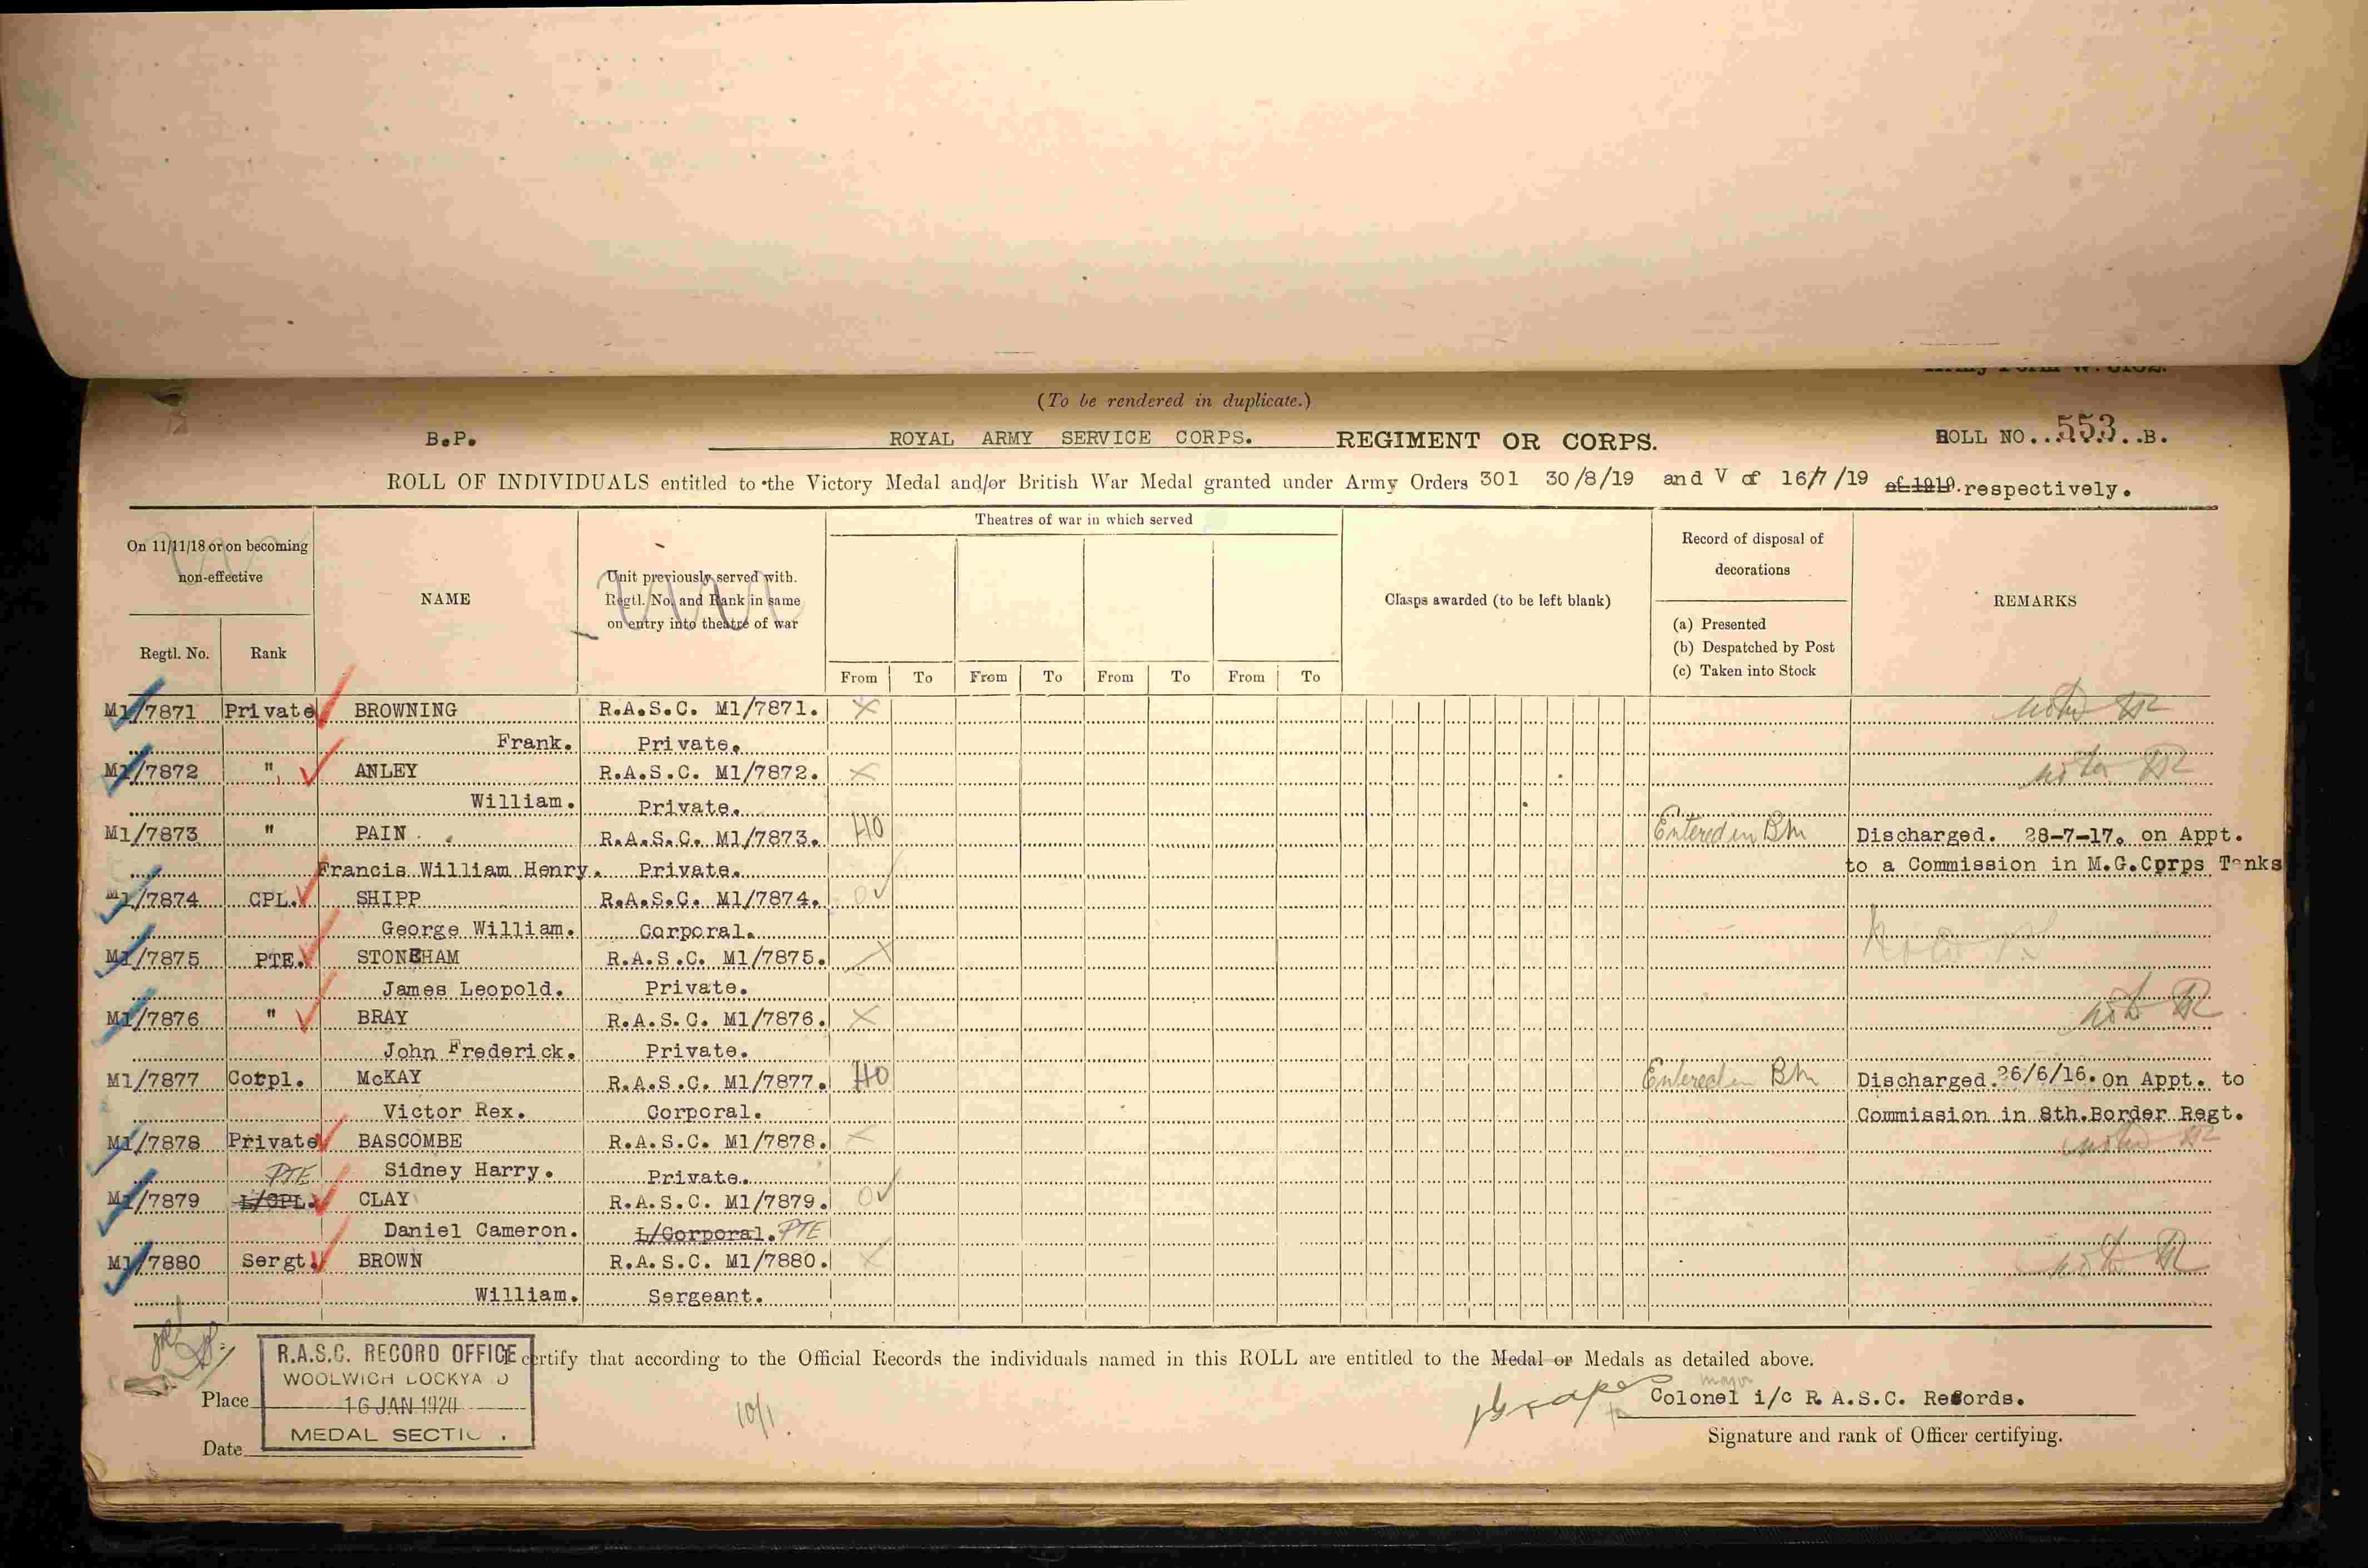 (To be rendered in duplicate.)
B.P. ROYAL ARMY SERVICE CORPS. REGIMENT OR CORPS. ROLL NO...553..B.
ROLL OF INDIVIDUALS entitled to the Victory Medal and/or British War Medal granted under Army Orders 301 30/8/19 and V of 16/7/19 of 1919. respectively.
On 11/11/18 or on becoming non-effective
Regtl. No.
Rank
NAME
Unit previously served with.
Regtl. No. and Rank in same
on entry into theatre of war
Theatres of war in which served
From To From To From To From To
Clasps awarded (to be left blank)
Record of disposal of
decorations
(a) Presented
(b) Despatched by Post
(c) Taken into Stock
REMARKS
M1/7871 Private BROWNING R.A.S.C. M1/7871. X
Frank. Private.
M1/7872 " ANLEY R.A.S.C. M1/7872. X
William. Private.
M1/7873 " PAIN R.A.S.C. M1/7873. HO Entered in BM Discharged. 28-7-17. on Appt.
Francis William Henry. Private. to a Commission in M.G.Corps Tanks
M1/7874 CPL. SHIPP R.A.S.C. M1/7874.
George William. Corporal.
M1/7875 PTE. STONEHAM R.A.S.C. M1/7875. X
James Leopold. Private.
M1/7876 " BRAY R.A.S.C. M1/7876. X
John Frederick. Private.
M1/7877 Corpl. McKAY R.A.S.C. M1/7877. HO Entered in BM Discharged.26/6/16. on Appt. to
Victor Rex. Corporal. Commission in 8th.Border Regt.
M1/7878 Private BASCOMBE R.A.S.C. M1/7878. X
PTE Sidney Harry. Private.
M1/7879 L/CPL. CLAY R.A.S.C. M1/7879.
Daniel Cameron. L/Corporal. PTE
M1/7880 Sergt. BROWN R.A.S.C. M1/7880. X
William. Sergeant.
R.A.S.C. RECORD OFFICE
WOOLWICH DOCKYA D
16 JAN 1920
MEDAL SECTIO .
I certify that according to the Official Records the individuals named in this ROLL are entitled to the Medal or Medals as detailed above.
Place
Date
10/1
major
Colonel i/c R.A.S.C. Records.
Signature and rank of Officer certifying.